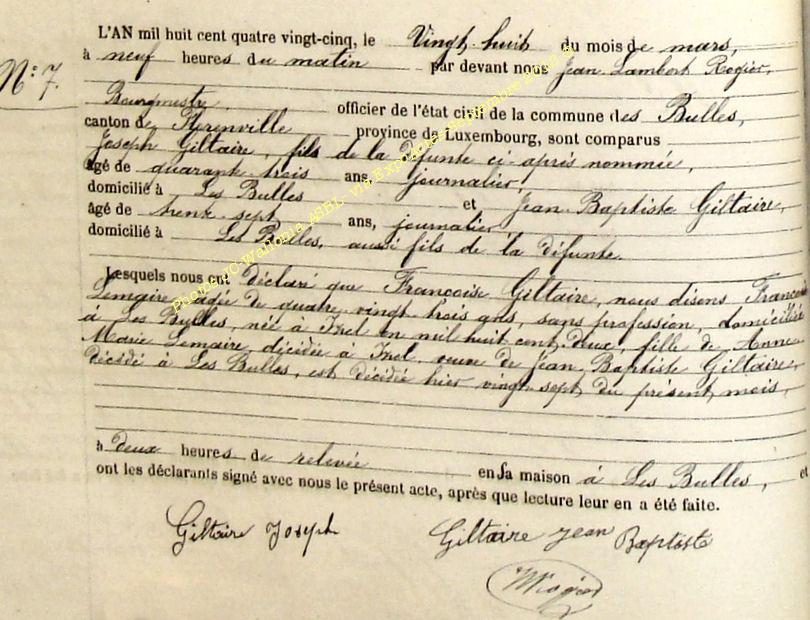 L'AN mil huit cent quatre vingt-cinq, le Vingt-huit du mois de mars,
N° 7. à neuf heures du matin par devant nous Jean Lambert Rogier,
Bourgmestre officier de l'état civil de la commune des Bulles,
canton de Florenville province de Luxembourg, sont comparus
Joseph Giltaire, fils de la défunte ci-après nommée,
âgé de quarante trois ans, journalier,
domicilié à Les Bulles et Jean-Baptiste Giltaire,
âgé de trente sept ans, journalier
domicilié à Les Bulles, aussi fils de la défunte.
Lesquels nous ont déclaré que Françoise Giltaire, nous disons Françoise
Lemaire, âgée de quatre vingt trois ans, sans profession, domiciliée
à Les Bulles, née à Izel en mil huit cent deux, fille de Anne
Marie Lemaire, décédée à Izel, veuve de Jean Baptiste Giltaire,
décédé à Les Bulles, est décédée hier vingt sept du présent mois,
à deux heures de relevée en sa maison à Les Bulles, et
ont les déclarants signé avec nous le présent acte, après que lecture leur en a été faite.
Giltaire Joseph Giltaire jean Baptiste
Rogier